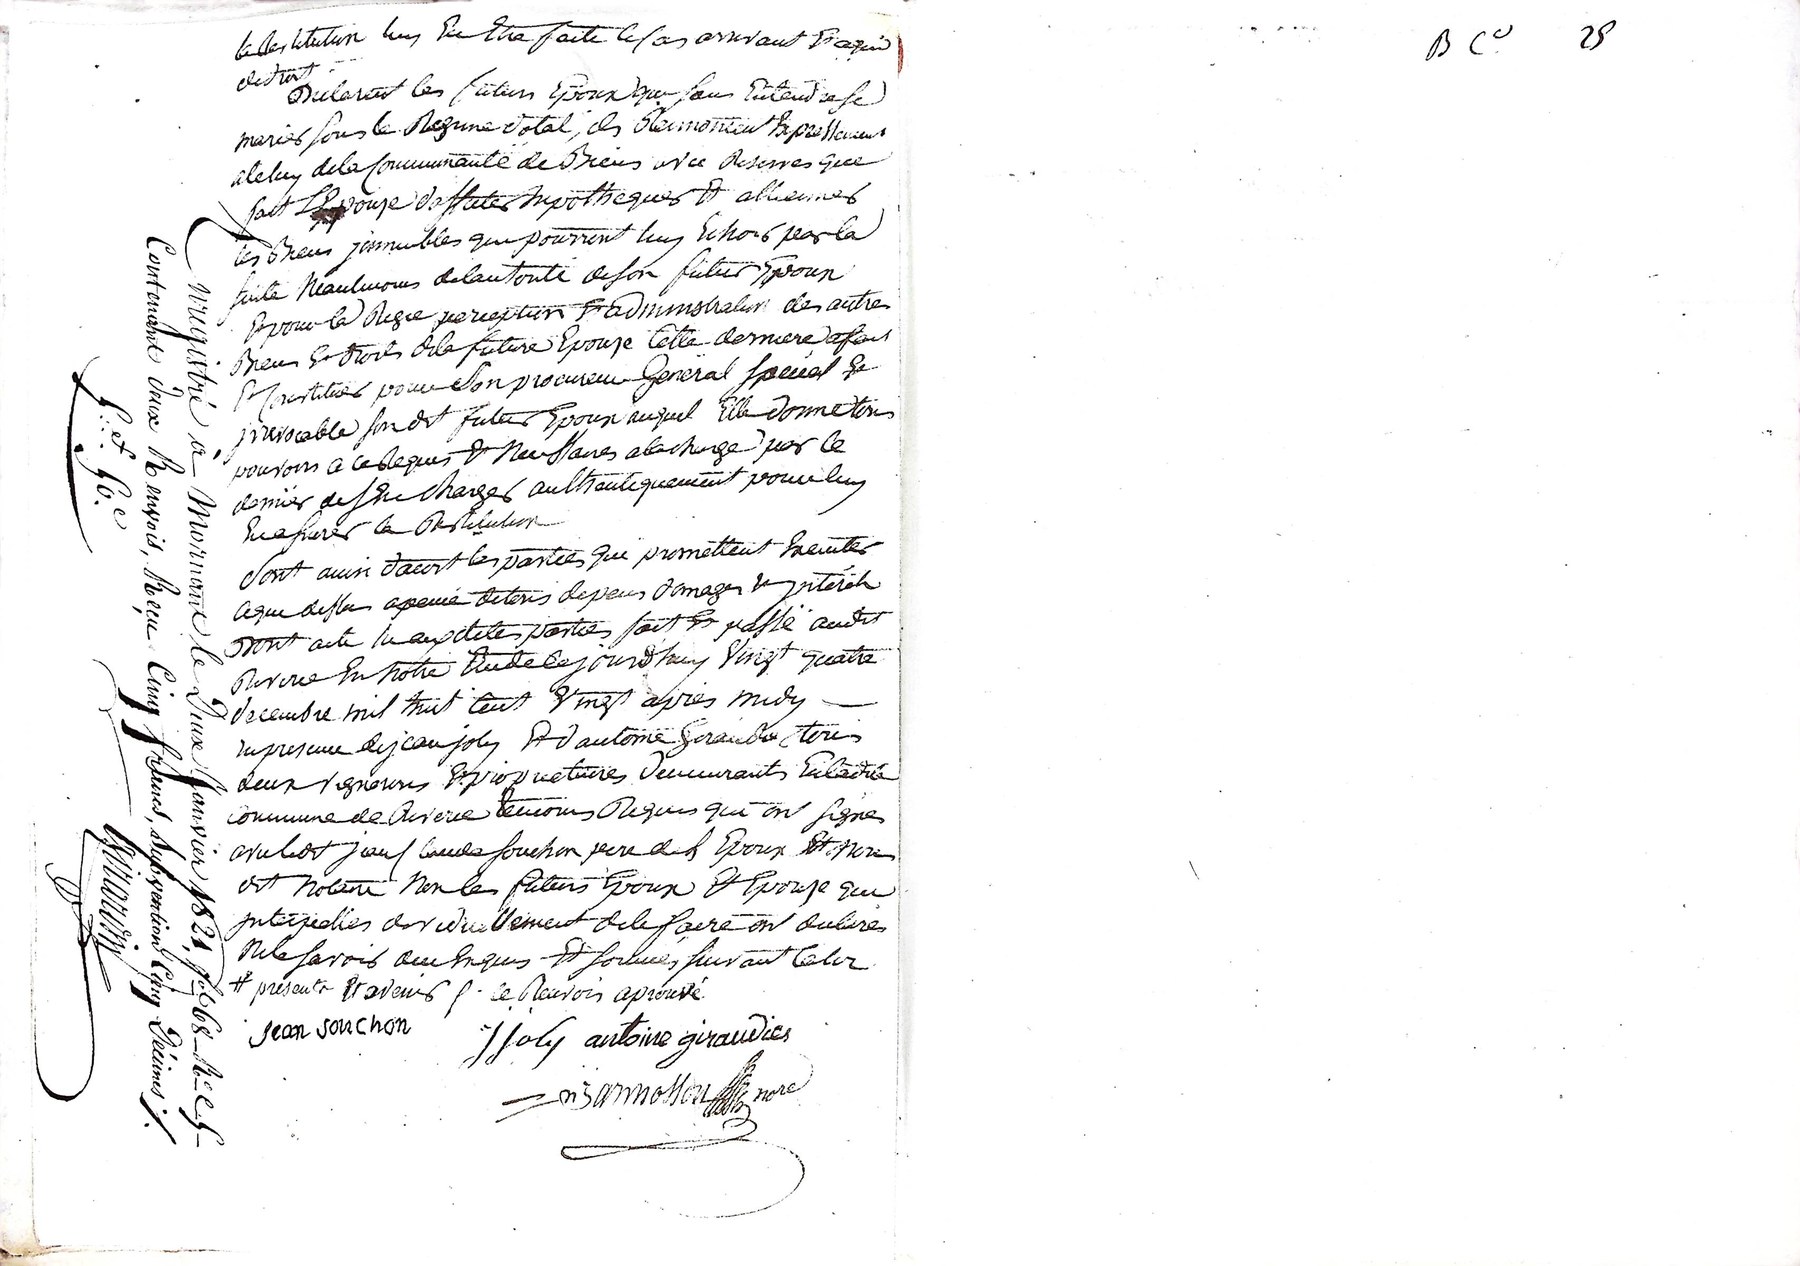 la Restitution luy En Etre faite le Cas arrivant Et aqui
de droit
Déclarent les futurs Epoux que sans Entendre se
marier sous le Regime dotal, ils Renoncent Expressement
a celuy de la Communauté de Biens avec Reserves que
fait L'Epouze hypothequer Et alliener
les Biens jmmubles qui pourront luy Echoir par la
suite Neanmoins de lautorité de son futur Epoux
Et pour la Regie perception Et administration des autres
Biens Et droits de la future Epouze Cette derniere a fait
Et Constitué pour Son procureur Général spécial Et
jrrevocable son dit futur Epoux auquel Elle donne tous
pouvoirs a ce Requis Et Necessaires a la charge par ce
dernier de sen Charger authentiquement pour luy
En assurer la Restitution
Sont ainsi dacort les parties qui promettent Executer
ce que dessus a peine de tous depens domages Et jnterêts
Dont acte lu aux dites parties fait Et passé audit
Riverie En Notre Etude ce jourdhuy Vingt quatre
decembre mil huit Cent Vingt après midy —
En presence de jean joly Et dantoine Giraudier tous
deux vignerons Et propriétaires demeurants En ladite
commune de Riverie temoins Requis qui ont signé
avec ledit jean Claude Souchon pere de L'Epoux Et Nous
dit Notaire Non les futurs Epoux Et Epouze qui
jnterpellés de le faire ont declaré
Ne le savoir de ce Enquis Et sommés suivant la loy
# présents Et avenir le Renvois aprouvé
jean souchon
j joly antoine giraudier
Bannosson nore
Enregistré à Mornant le Deux Janvier 1821, fol. 68
Contenant deux Renvois, Reçu Cinq francs, Subvention Cinq Décimes ./.
B Co 25